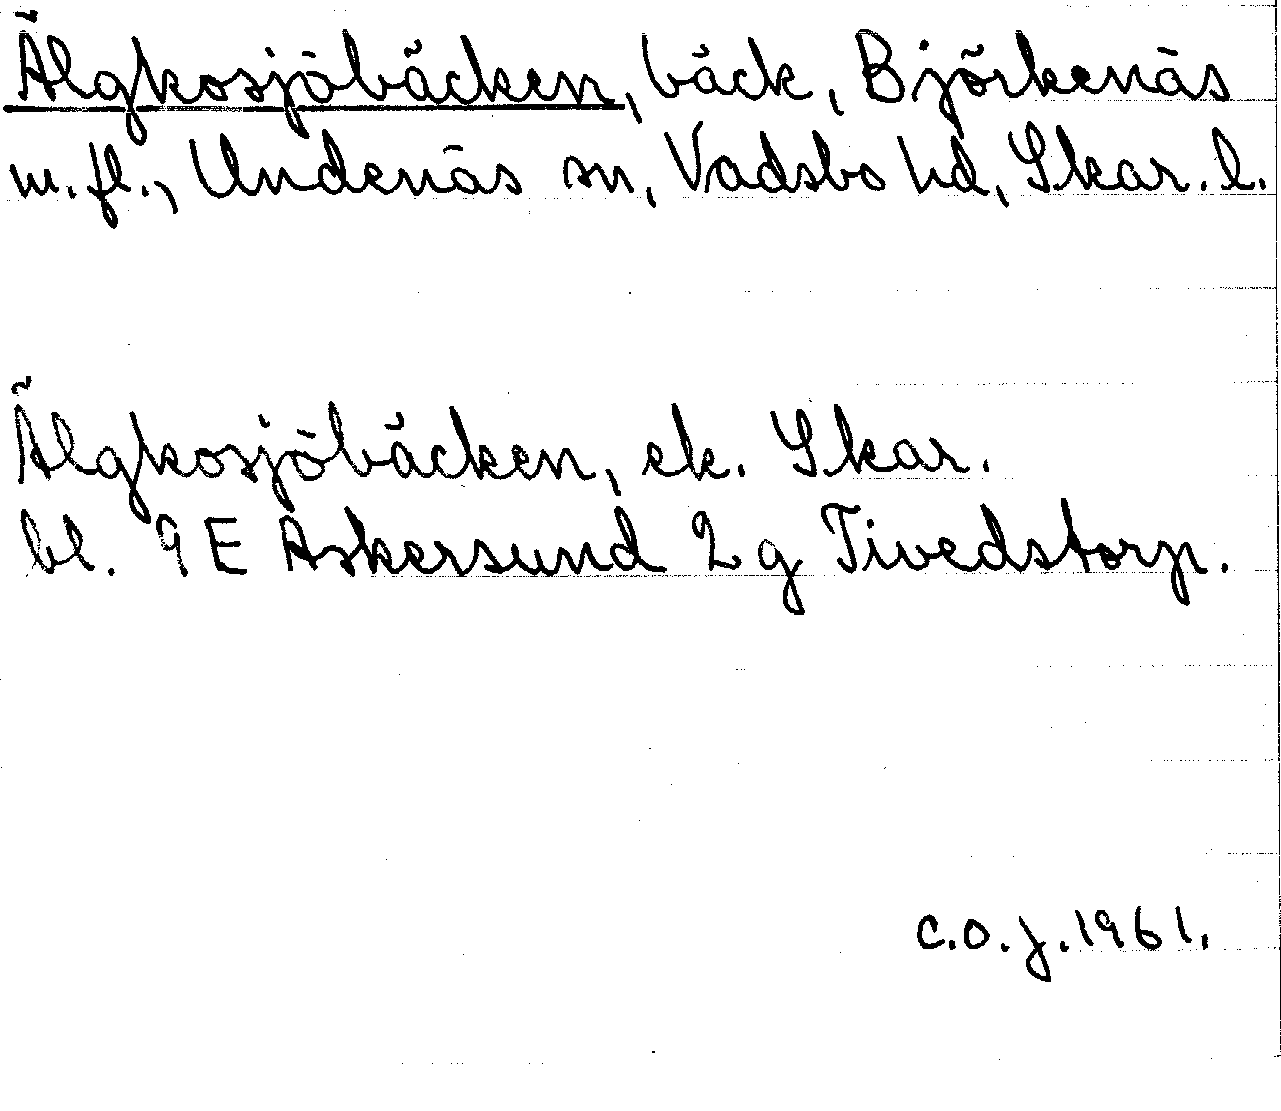 Älgkosjöbäcken, bäck, Björkenäs
m.fl., Undenäs sn, Vadsbo hd, Skar. l.
Älgkosjöbäcken, ek. Skar.
bl. 9 E Askersund 2 g Tivedstorp.
C.O.J. 1961.